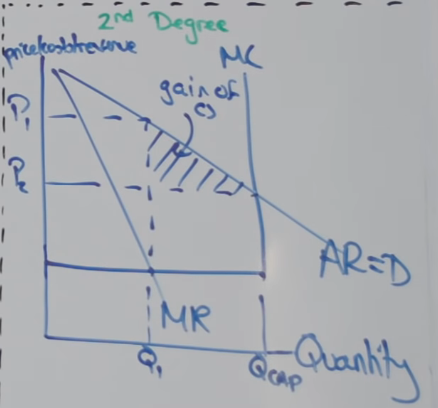 2nd Degree
price/cost/revenue
MC
gain of
CS
P1
P2
AR=D
MR
Q1
QCAP
Quantity